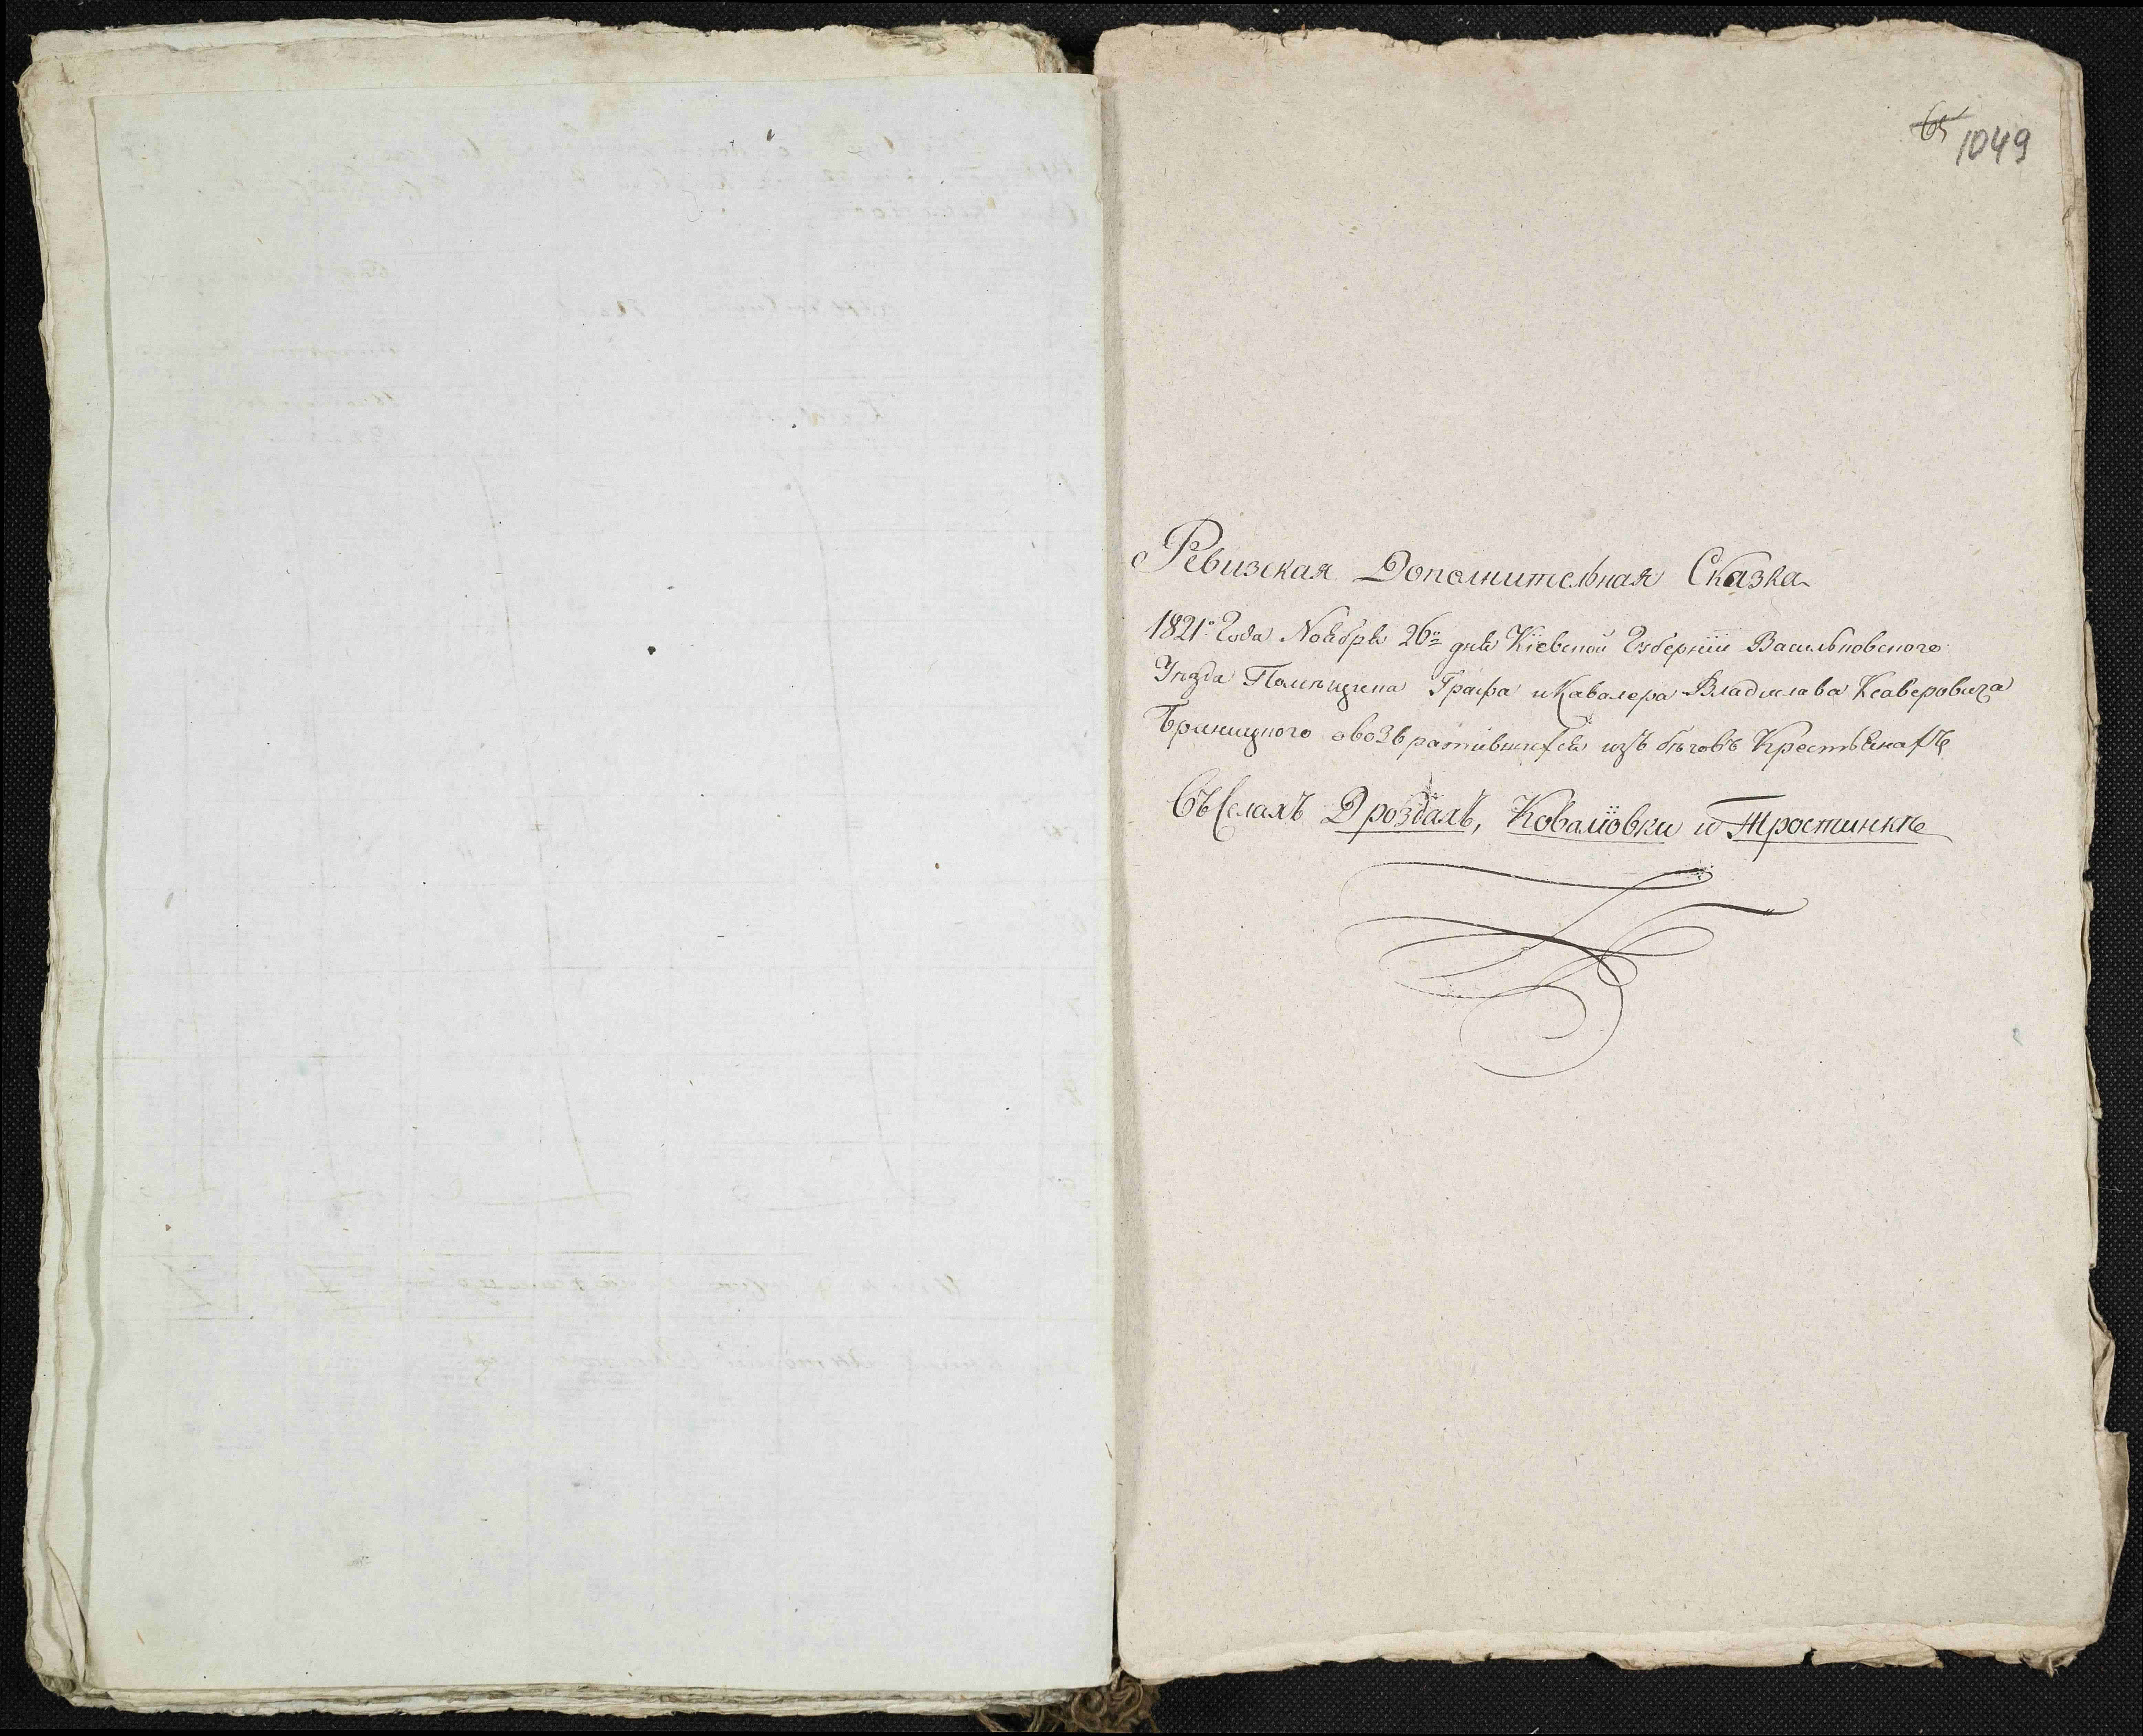 65 1049
Ревизская Дополнительная Сказка
1821го Года Ноября 26го дня Кіевской Губерніи Васильковского
Уѣзда Помѣщика Графа и Кавалера Владислава Ксаверовича
Браницкого овозвратившихся изъ бѣговъ Крестьянахъ
Въ Селахъ Дроздахъ, Ковалювки и Тростинкѣ